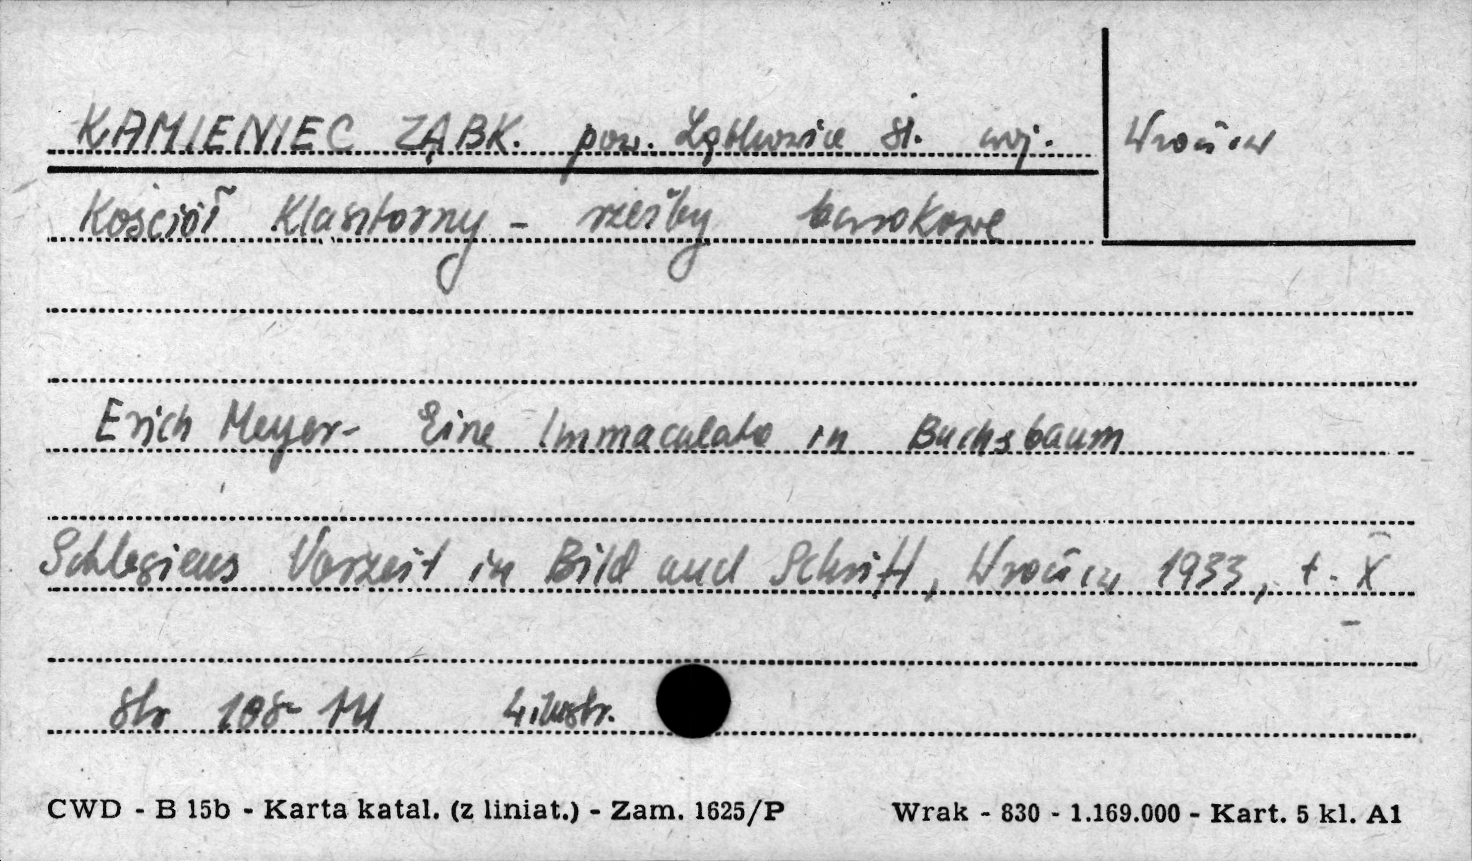 KAMIENIEC ZĄBK. pow. Ząbkowice Śl. woj. Wrocław
Kościół Klasztorny - rzeźby barokowe
Erich Meyer - Eine Immaculata in Buchsbaum
Schlesiens Vorzeit in Bild und Schrift, Wrocław 1933, t. X
str 108-111 4 ilustr.
CWD - B 15b - Karta katal. (z liniat.) - Zam. 1625/P Wrak - 830 - 1.169.000 - Kart. 5 kl. A1